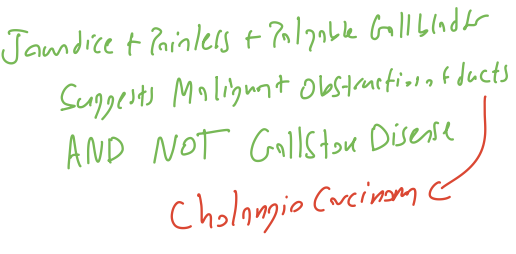 Jaundice + Painless + Palpable Gallbladder
Suggests Malignant Obstruction of ducts
AND NOT Gallstone Disease
Cholangio Carcinoma